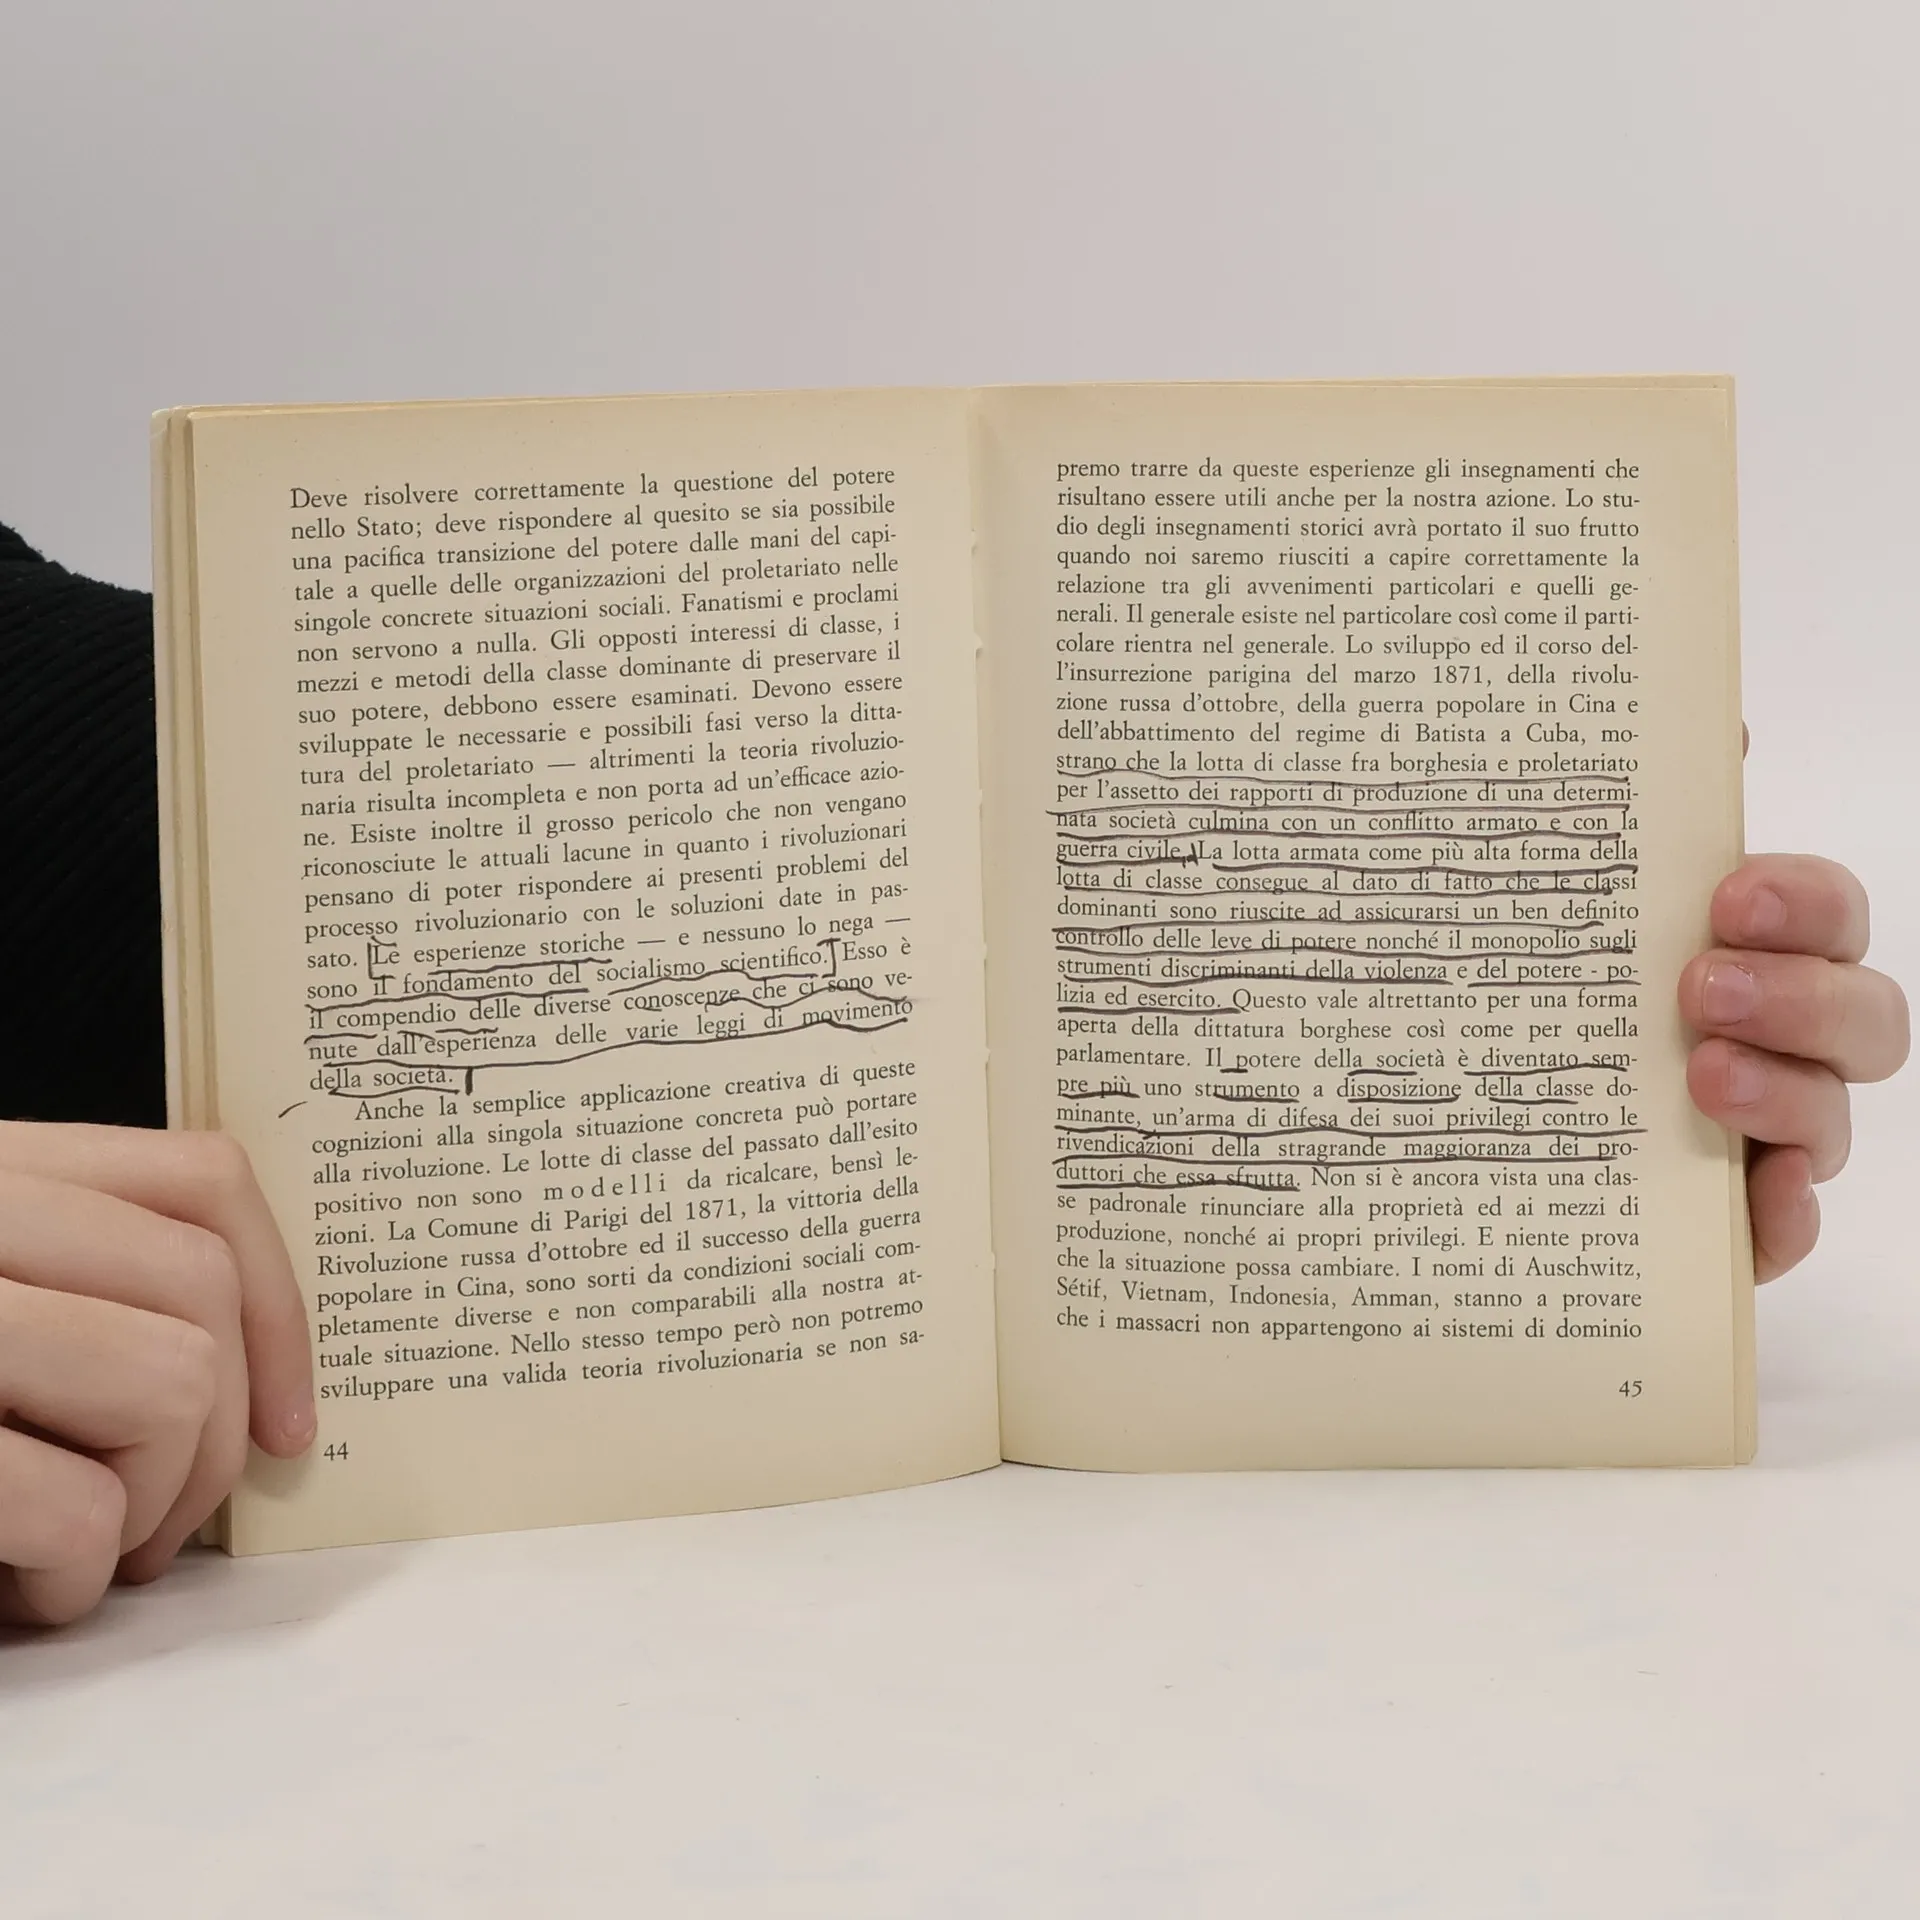 Deve risolvere correttamente la questione del potere
nello Stato; deve rispondere al quesito se sia possibile
una pacifica transizione del potere dalle mani del capi-
tale a quelle delle organizzazioni del proletariato nelle
singole concrete situazioni sociali. Fanatismi e proclami
non servono a nulla. Gli opposti interessi di classe, i
mezzi e metodi della classe dominante di preservare il
suo potere, debbono essere esaminati. Devono essere
sviluppate le necessarie e possibili fasi verso la ditta-
tura del proletariato — altrimenti la teoria rivoluzio-
naria risulta incompleta e non porta ad un'efficace azio-
ne. Esiste inoltre il grosso pericolo che non vengano
riconosciute le attuali lacune in quanto i rivoluzionari
pensano di poter rispondere ai presenti problemi del
processo rivoluzionario con le soluzioni date in pas-
sato. Le esperienze storiche — e nessuno lo nega —
sono il fondamento del socialismo scientifico. Esso è
il compendio delle diverse conoscenze che ci sono ve-
nute dall'esperienza delle varie leggi di movimento
della società.
Anche la semplice applicazione creativa di queste
cognizioni alla singola situazione concreta può portare
alla rivoluzione. Le lotte di classe del passato dall'esito
positivo non sono modelli da ricalcare, bensì le-
zioni. La Comune di Parigi del 1871, la vittoria della
Rivoluzione russa d'ottobre ed il successo della guerra
popolare in Cina, sono sorti da condizioni sociali com-
pletamente diverse e non comparabili alla nostra at-
tuale situazione. Nello stesso tempo però non potremo
sviluppare una valida teoria rivoluzionaria se non sa-
44
premo trarre da queste esperienze gli insegnamenti che
risultano essere utili anche per la nostra azione. Lo stu-
dio degli insegnamenti storici avrà portato il suo frutto
quando noi saremo riusciti a capire correttamente la
relazione tra gli avvenimenti particolari e quelli ge-
nerali. Il generale esiste nel particolare così come il parti-
colare rientra nel generale. Lo sviluppo ed il corso del-
l'insurrezione parigina del marzo 1871, della rivolu-
zione russa d'ottobre, della guerra popolare in Cina e
dell'abbattimento del regime di Batista a Cuba, mo-
strano che la lotta di classe fra borghesia e proletariato
per l'assetto dei rapporti di produzione di una determi-
nata società culmina con un conflitto armato e con la
guerra civile. La lotta armata come più alta forma della
lotta di classe consegue al dato di fatto che le classi
dominanti sono riuscite ad assicurarsi un ben definito
controllo delle leve di potere nonché il monopolio sugli
strumenti discriminanti della violenza e del potere - po-
lizia ed esercito. Questo vale altrettanto per una forma
aperta della dittatura borghese così come per quella
parlamentare. Il potere della società è diventato sem-
pre più uno strumento a disposizione della classe do-
minante, un'arma di difesa dei suoi privilegi contro le
rivendicazioni della stragrande maggioranza dei pro-
duttori che essa sfrutta. Non si è ancora vista una clas-
se padronale rinunciare alla proprietà ed ai mezzi di
produzione, nonché ai propri privilegi. E niente prova
che la situazione possa cambiare. I nomi di Auschwitz,
Sétif, Vietnam, Indonesia, Amman, stanno a provare
che i massacri non appartengono ai sistemi di dominio
45